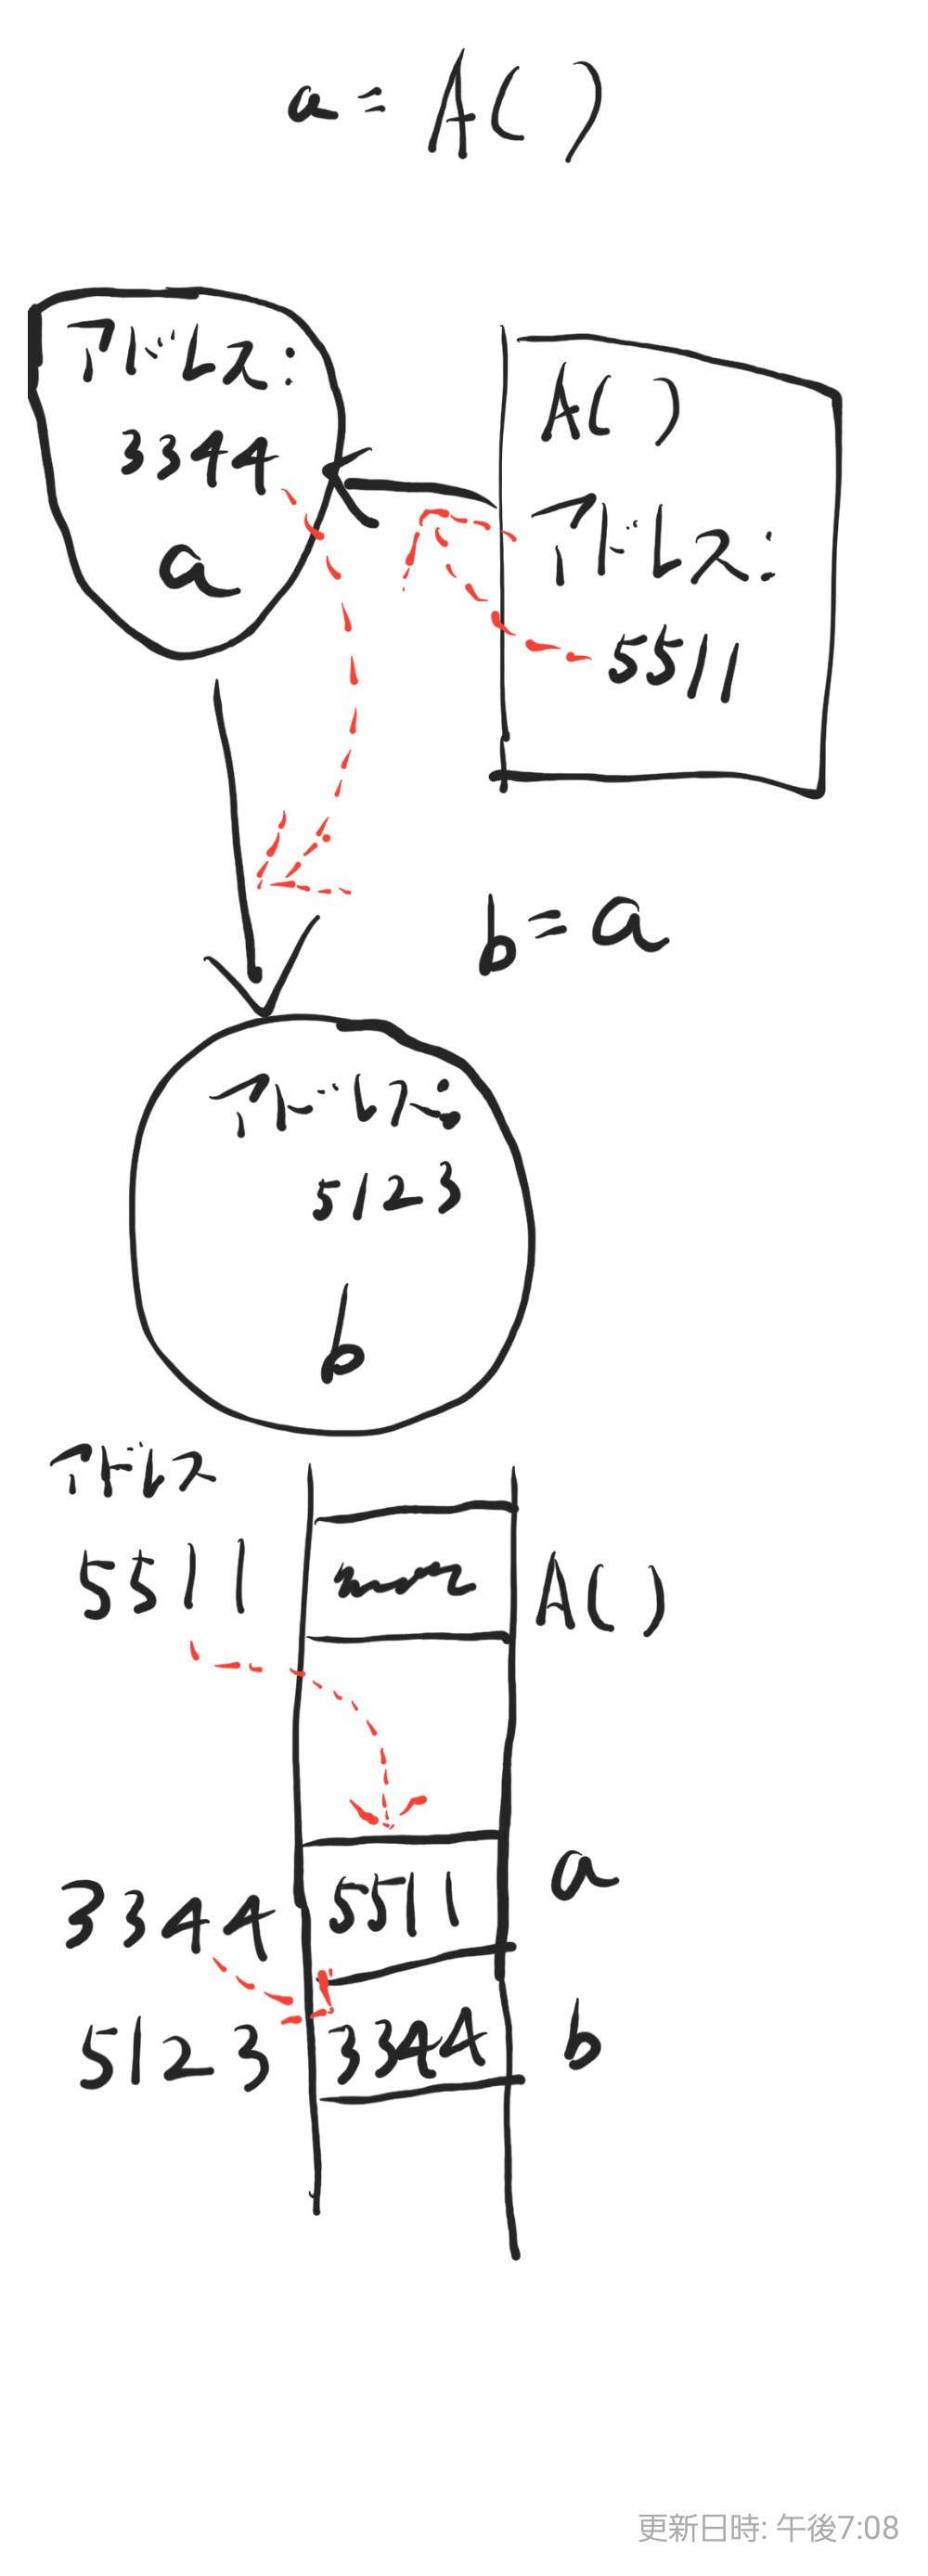 a = A()
アドレス:
3344
a
A()
アドレス:
5511
b = a
アドレス:
5123
b
アドレス
5511 A()
3344 5511 a
5123 3344 b
更新日時: 午後7:08